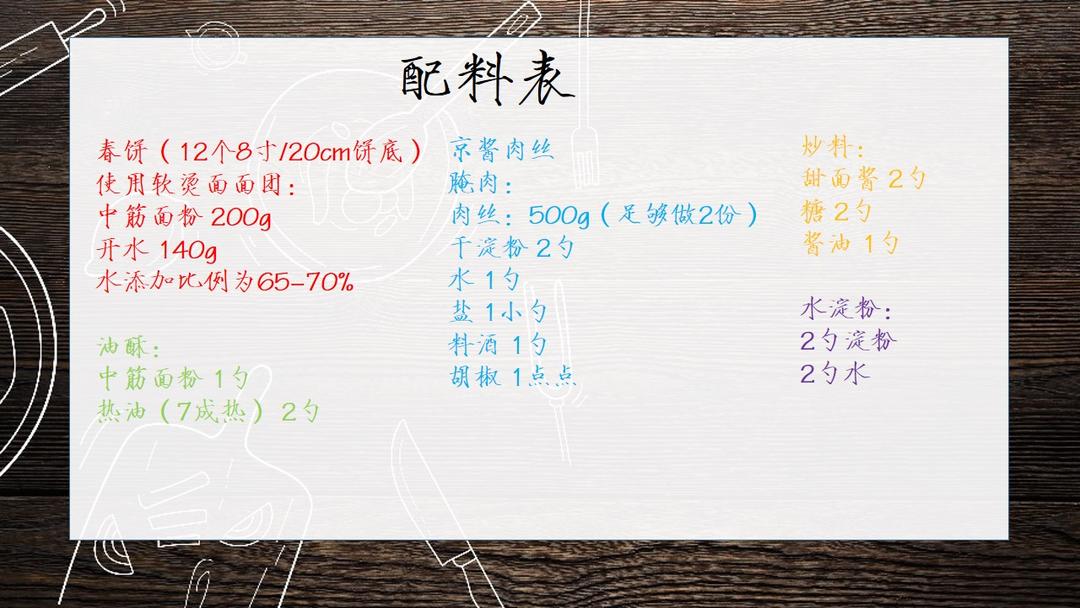 配料表
春饼（12个8寸/20cm饼底）
使用软烫面面团：
中筋面粉 200g
开水 140g
水添加比例为65-70%
油酥：
中筋面粉 1勺
热油（7成热） 2勺
京酱肉丝
腌肉：
肉丝：500g（足够做2份）
干淀粉 2勺
水 1勺
盐 1小勺
料酒 1勺
胡椒 1点点
炒料：
甜面酱 2勺
糖 2勺
酱油 1勺
水淀粉：
2勺淀粉
2勺水